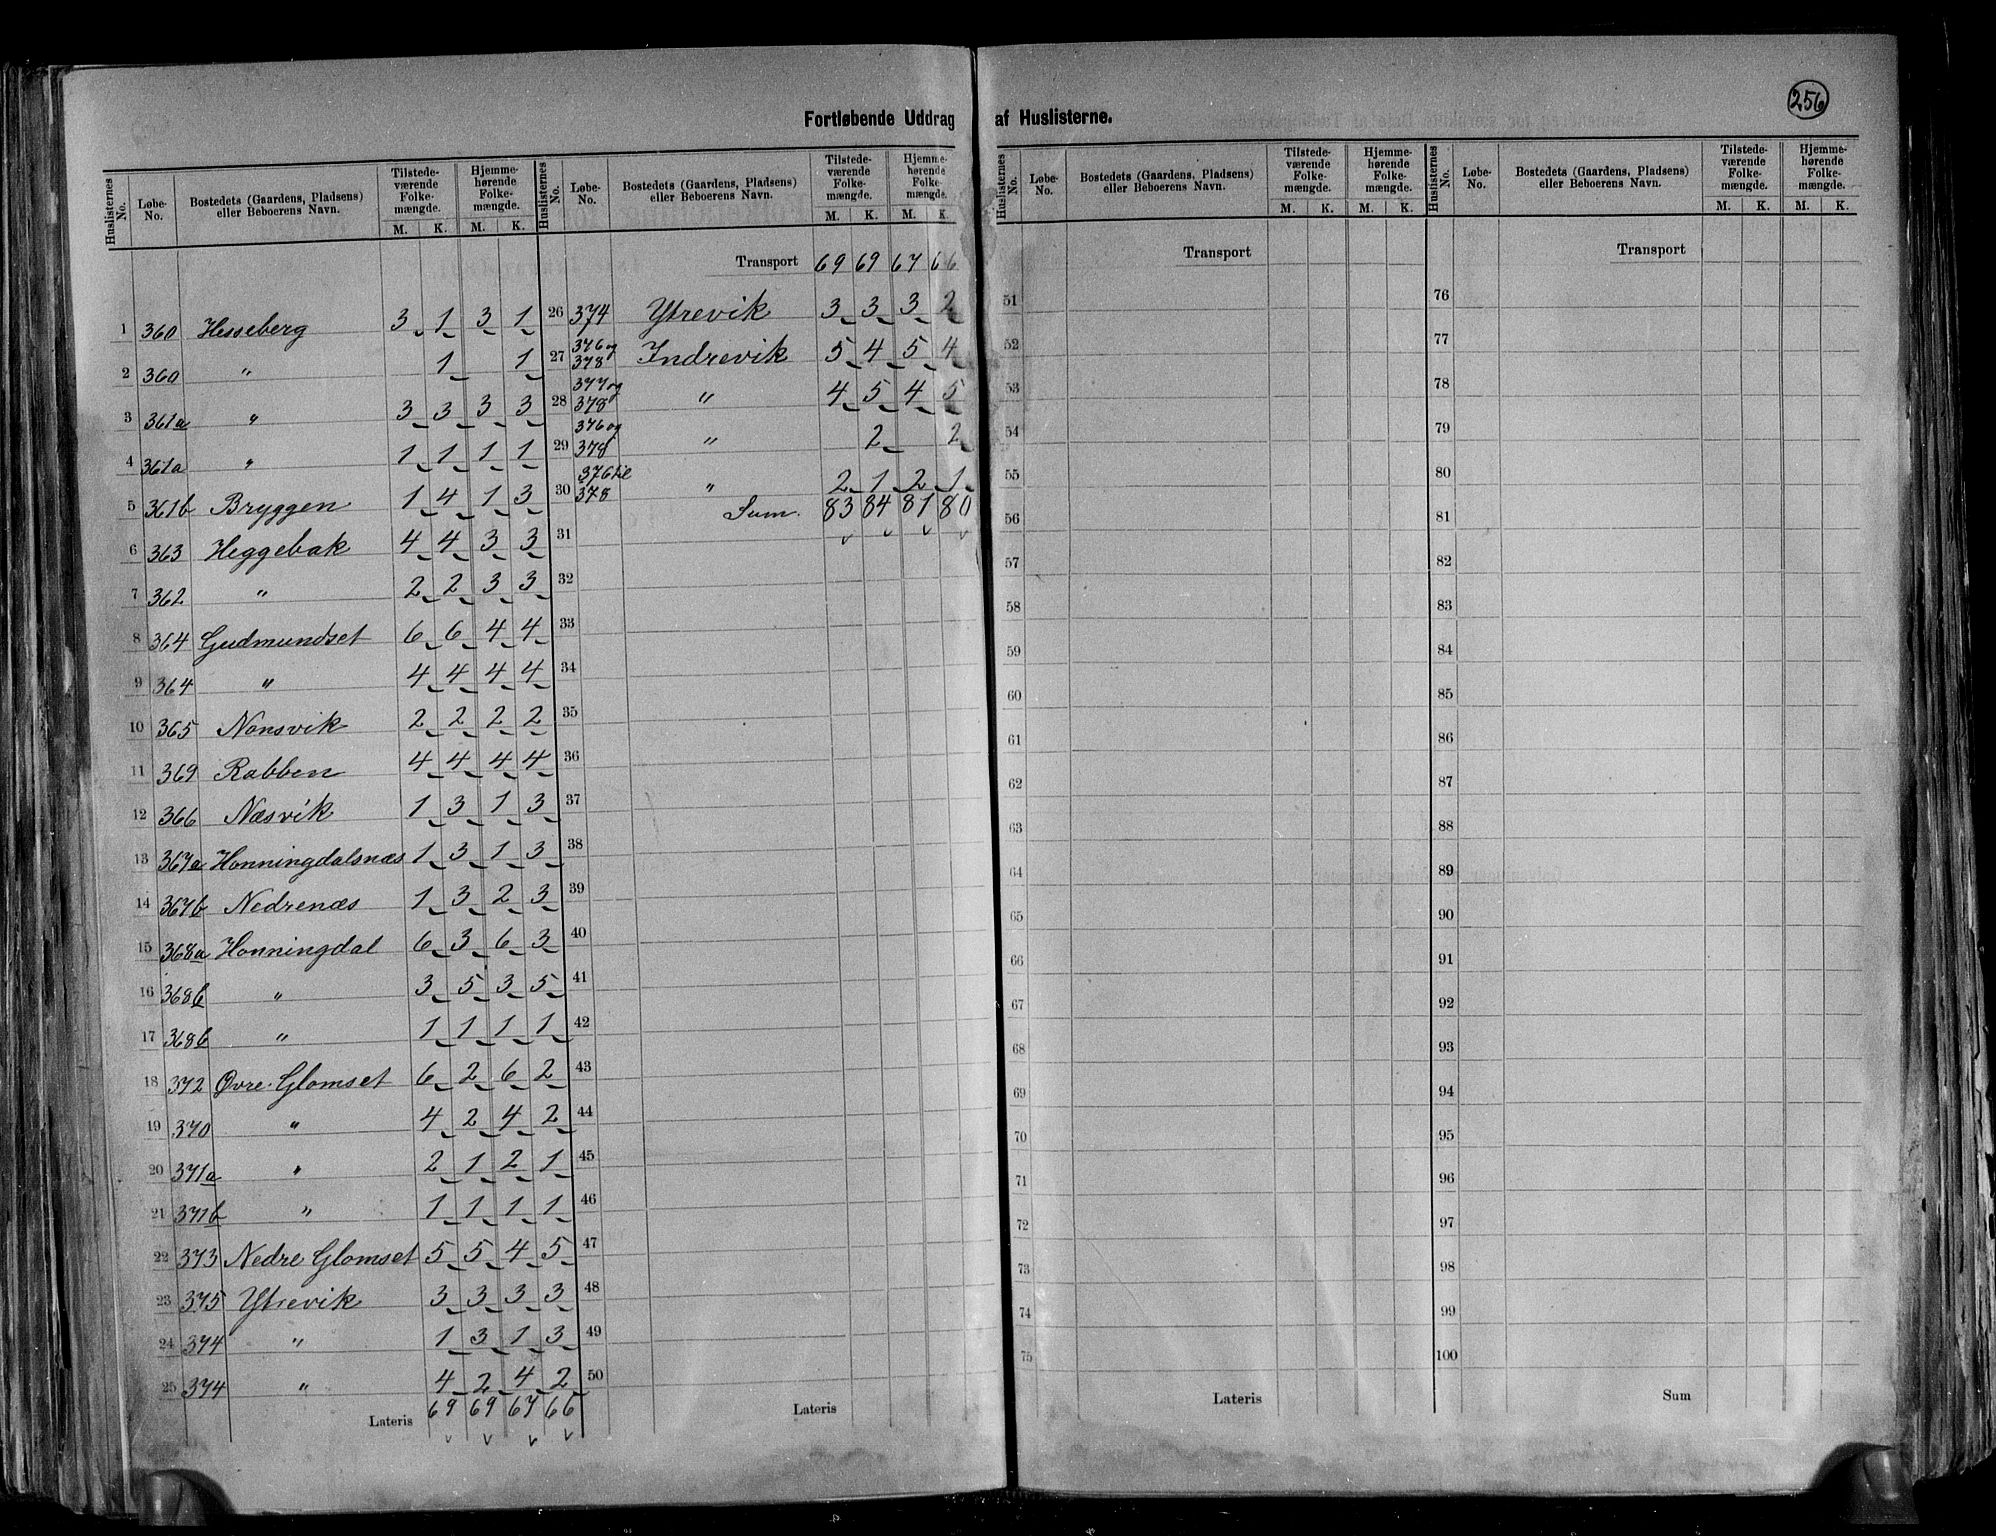 256
Fortløbende Uddrag af Huslisterne.
Huslisternes No. Løbe-No. Bostedets (Gaardens, Pladsens) eller Beboerens Navn. Tilstedeværende Folkemængde. M. K. Hjemmehørende Folkemængde. M. K.
1 360 Hesseberg 3 1 3 1
2 360 " 1 1
3 361a " 3 3 3 3
4 361a " 1 1 1 1
5 361b Bryggen 1 4 1 3
6 363 Heggebak 4 4 3 3
7 362 " 2 2 3 3
8 364 Gudmundset 6 6 4 4
9 364 " 4 4 4 4
10 365 Nonsvik 2 2 2 2
11 369 Rabben 4 4 4 4
12 366 Næsvik 1 3 1 3
13 367a Honningdalsnæs 1 3 1 3
14 367b Nedrenæs 1 3 2 3
15 368a Honningdal 6 3 6 3
16 368b " 3 5 3 5
17 368b " 1 1 1 1
18 372 Øvre Glomset 6 2 6 2
19 370 " 4 2 4 2
20 371a " 2 1 2 1
21 371b " 1 1 1 1
22 373 Nedre Glomset 5 5 4 5
23 375 Ytrevik 3 3 3 3
24 374 " 1 3 1 3
25 374 " 4 2 4 2
Lateris 69 69 67 66
Huslisternes No. Løbe-No. Bostedets (Gaardens, Pladsens) eller Beboerens Navn. Tilstedeværende Folkemængde. M. K. Hjemmehørende Folkemængde. M. K.
Transport 69 69 67 66
26 374 Ytrevik 3 3 3 2
27 376 og 378 Indrevik 5 4 5 4
28 377 og 378 " 4 5 4 5
29 376 og 378 " 2 2
30 376 til 378 " 2 1 2 1
Sum. 83 84 81 80
31
32
33
34
35
36
37
38
39
40
41
42
43
44
45
46
47
48
49
50
Lateris
Huslisternes No. Løbe-No. Bostedets (Gaardens, Pladsens) eller Beboerens Navn. Tilstedeværende Folkemængde. M. K. Hjemmehørende Folkemængde. M. K.
Transport
51
52
53
54
55
56
57
58
59
60
61
62
63
64
65
66
67
68
69
70
71
72
73
74
75
Lateris
Huslisternes No. Løbe-No. Bostedets (Gaardens, Pladsens) eller Beboerens Navn. Tilstedeværende Folkemængde. M. K. Hjemmehørende Folkemængde. M. K.
Transport
76
77
78
79
80
81
82
83
84
85
86
87
88
89
90
91
92
93
94
95
96
97
98
99
100
Sum